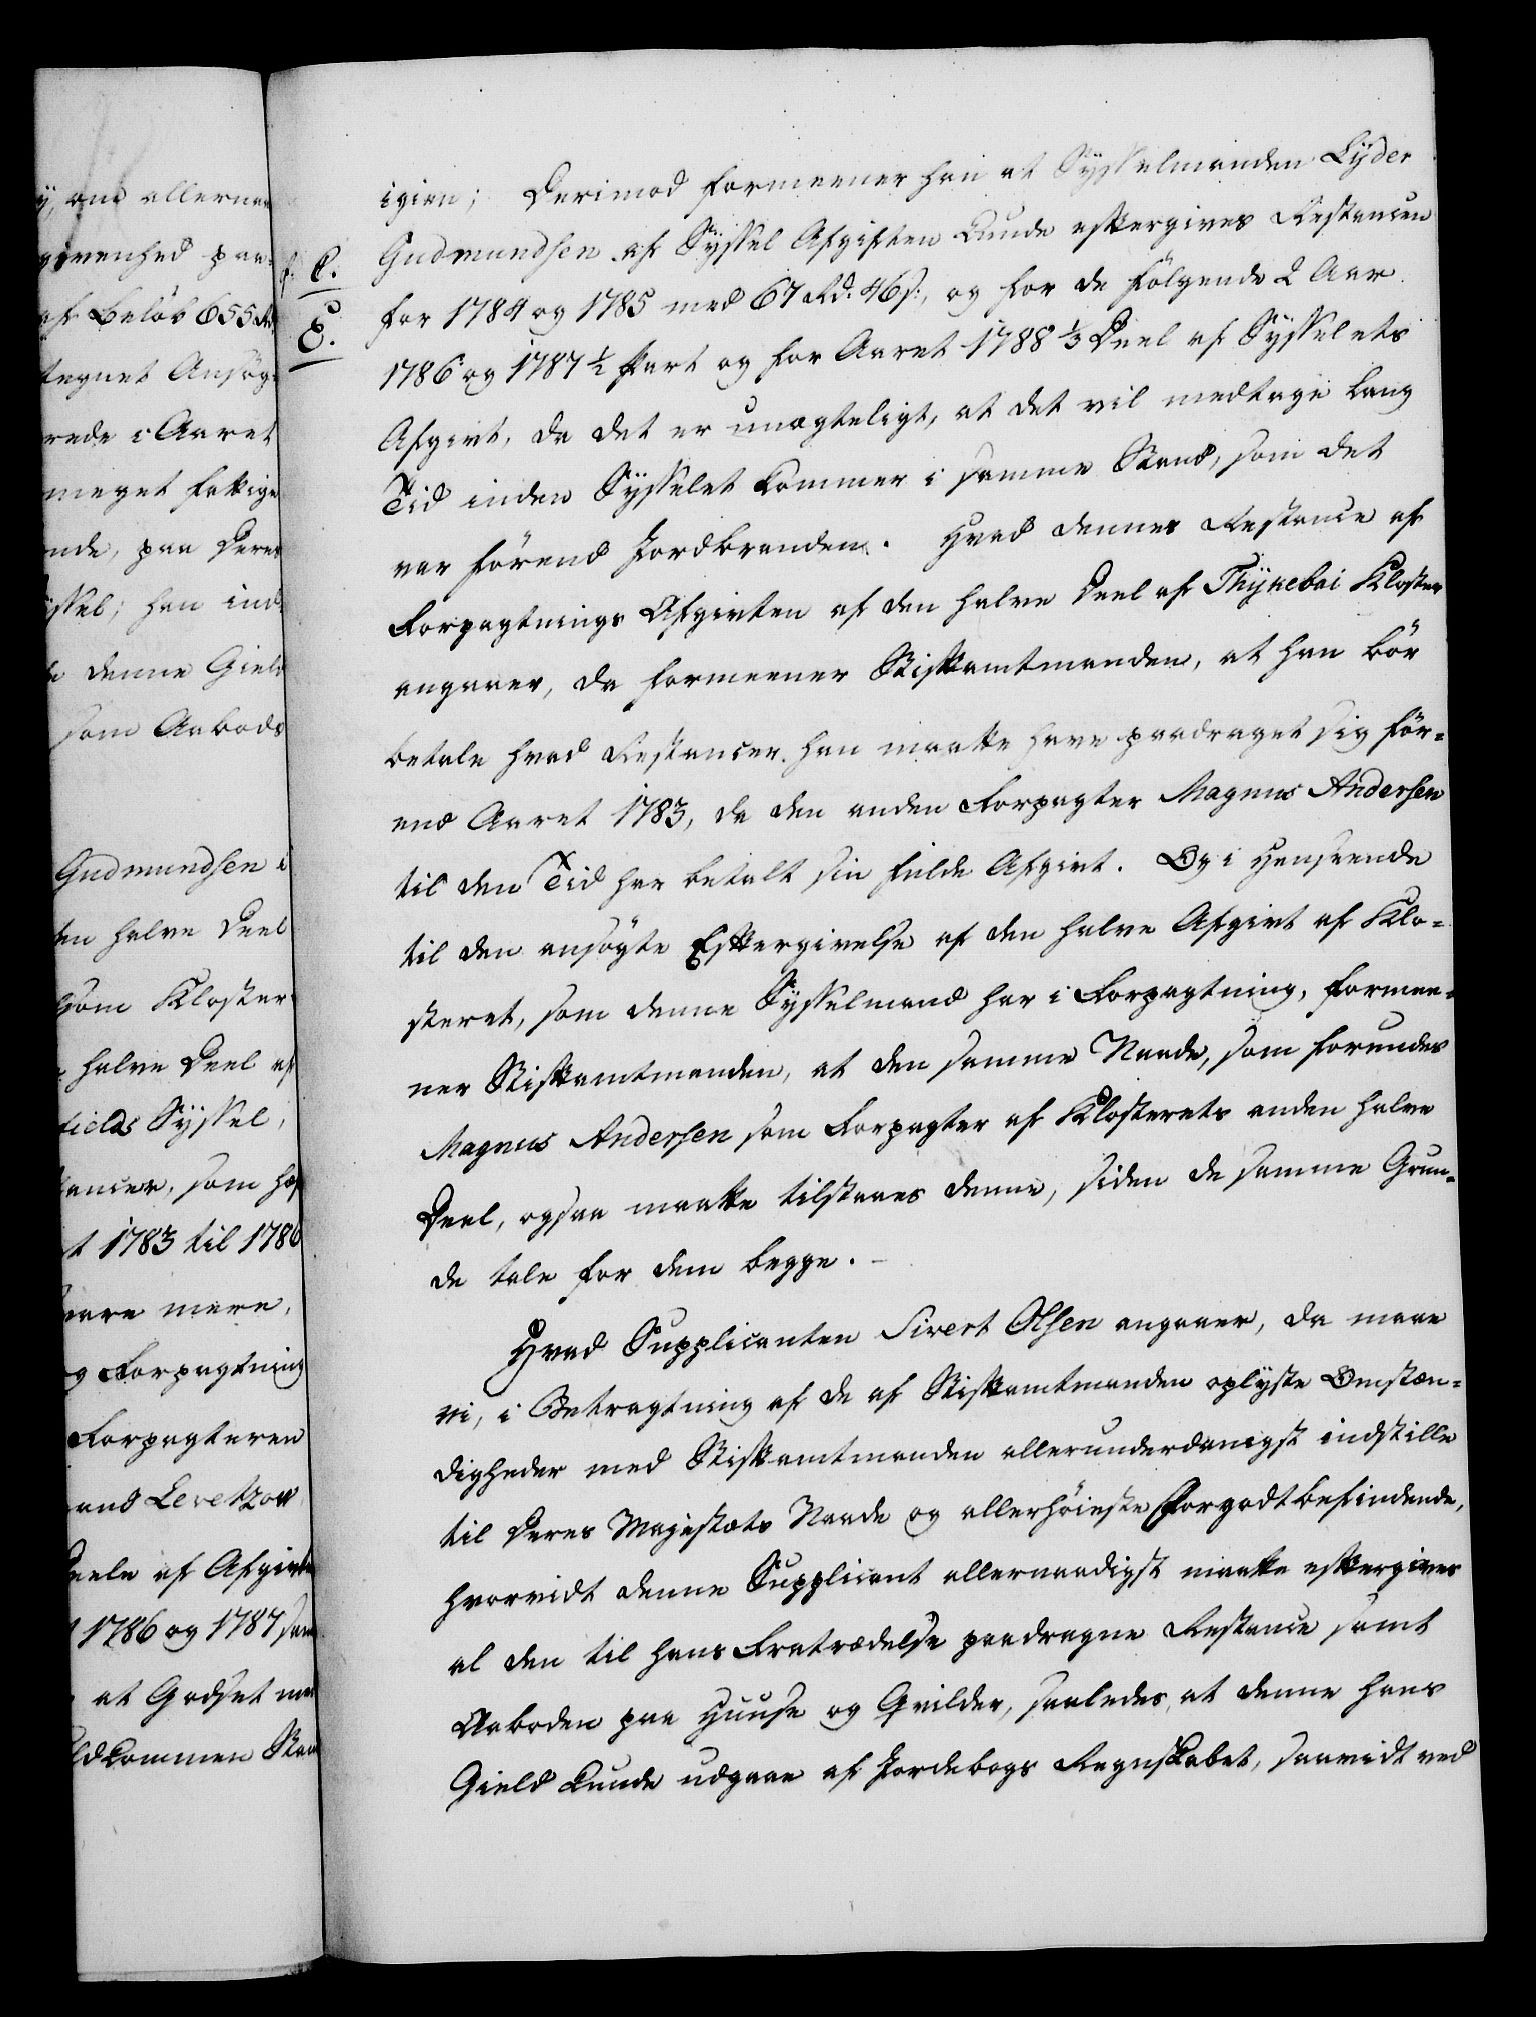 y, om allernaa
givenhed paa
af Beløb 655 Rd
tegnet Ansøg-
rede i Aaret
meget fattige
ende, paa Deres
yssel; han ind-
denne Gield
som Aabods
Gudmundsen i
den halve Deel
som Kloster
halve Deel af
fields Syssel,
tancer, som hæf
et 1783 til 1786
mere,
og Forpagtning
Forpagteren
and Levetzow
Deele af Afgivt
1786 og 1787
at Godset
ldkommen Stan
C.
E.
igien; Derimod formeener han at Sysselmanden Lyder
Gudmundsen af Syssel Afgiften kunde eftergives Restancen
for 1784 og 1785 med 67 Rd. 46 s:, og for de følgende 2 Aar
1786 og 1787 ½ part og for Aaret 1788 ⅓ Deel af Sysselets
Afgivt, da det er unægteligt, at det vil medtage lang
Tid inden Sysselet kommer i samme Stand, som det
var førend Jordbranden. Hvad dennes Restance af
Forpagtnings Afgivten af den halve Deel af Thykebai Kloster
angaaer, da formeener Stiftamtmanden, at han bør
betale hvad Restancer han maatte have paadraget sig før-
end Aaret 1783, da den anden Forpagter Magnus Andersen
til den Tid har betalt sin fulde Afgivt. Og i Henseende
til den ansøgte Eftergivelse af den halve Afgivt af Klo-
steret, som denne Sysselmand har i Forpagtning, formee-
ner Stiftamtmanden, at den samme Naade, som forundes
Magnus Andersen som Forpagter af Klosterets anden halve
Deel, ogsaa maatte tilstaaes denne, siden de samme Grun-
de tale for dem begge. -
Hvad Supplicanten Sivert Olsen angaaer, da maae
vi, i Betragtning af de af Stiftamtmanden oplyste Omstæn-
digheder med Stiftamtmanden allerunderdanigst indstille
til Deres Majestæts Naade og allerhøieste Forgodtbefindende,
hvorvidt denne Supplicant allernaadigst maatte eftergives
al den til hans Fratrædelse paadragne Restance samt
Aaboden paa Huuse og Qvilder, saaledes, at denne hans
Gield kunde udgaae af Jordebogs Regnskabet, saavidt ved